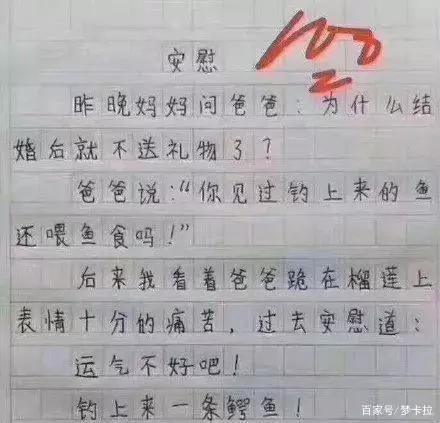 100
安慰
昨晚妈妈问爸爸：为什么结
婚后就不送礼物了？
爸爸说："你见过钓上来的鱼
还喂鱼食吗！"
后来我看着爸爸跪在榴莲上
表情十分的痛苦，过去安慰道：
运气不好吧！
钓上来一条鳄鱼！
百家号/梦卡拉